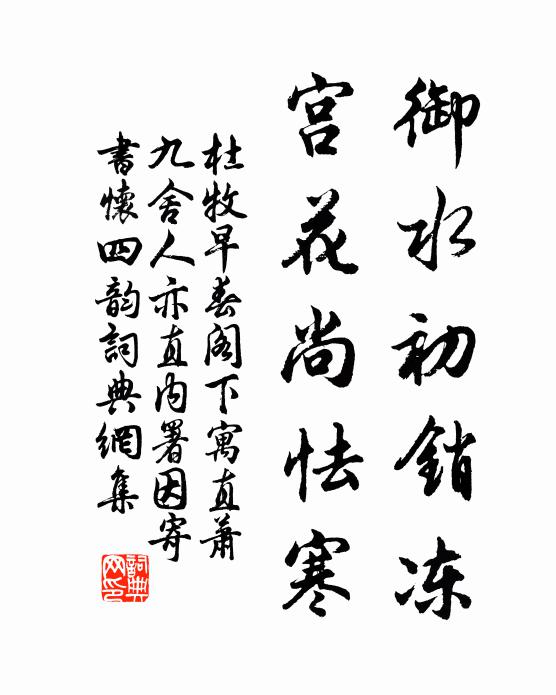 御水初銷冻
宫花尚怯寒
杜牧早春阁下寓直萧
九舍人亦直内署因寄
書懷四韵詞典網集
詞典
网印